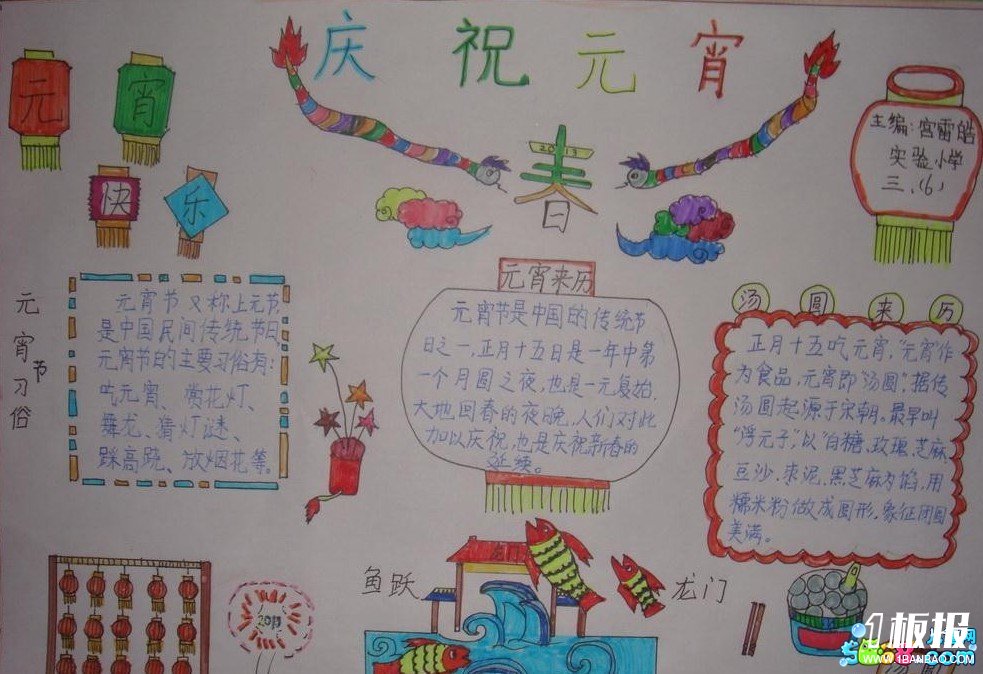 庆祝元宵
元宵
快乐
2013
春
主编:宫雷皓
实验小学
三.(6)
元宵节习俗
元宵节又称上元节,
是中国民间传统节日,
元宵节的主要习俗有:
吃元宵、赏花灯、
舞龙、猜灯谜、
踩高跷、放烟花等。
元宵来历
元宵节是中国的传统节
日之一,正月十五日是一年中第
一个月圆之夜,也是一元复始,
大地回春的夜晚,人们对此
加以庆祝,也是庆祝新春的
延续。
汤圆来历
正月十五吃元宵,“元宵”作
为食品,元宵即“汤圆”,据传
汤圆起源于宋朝,最早叫
“浮元子”,以“白糖,玫瑰,芝麻,
豆沙,枣泥,黑芝麻为馅,用
糯米粉做成圆形,象征团圆
美满。
鱼跃
龙门
2013
1板报
WWW.1BANBAO.COM